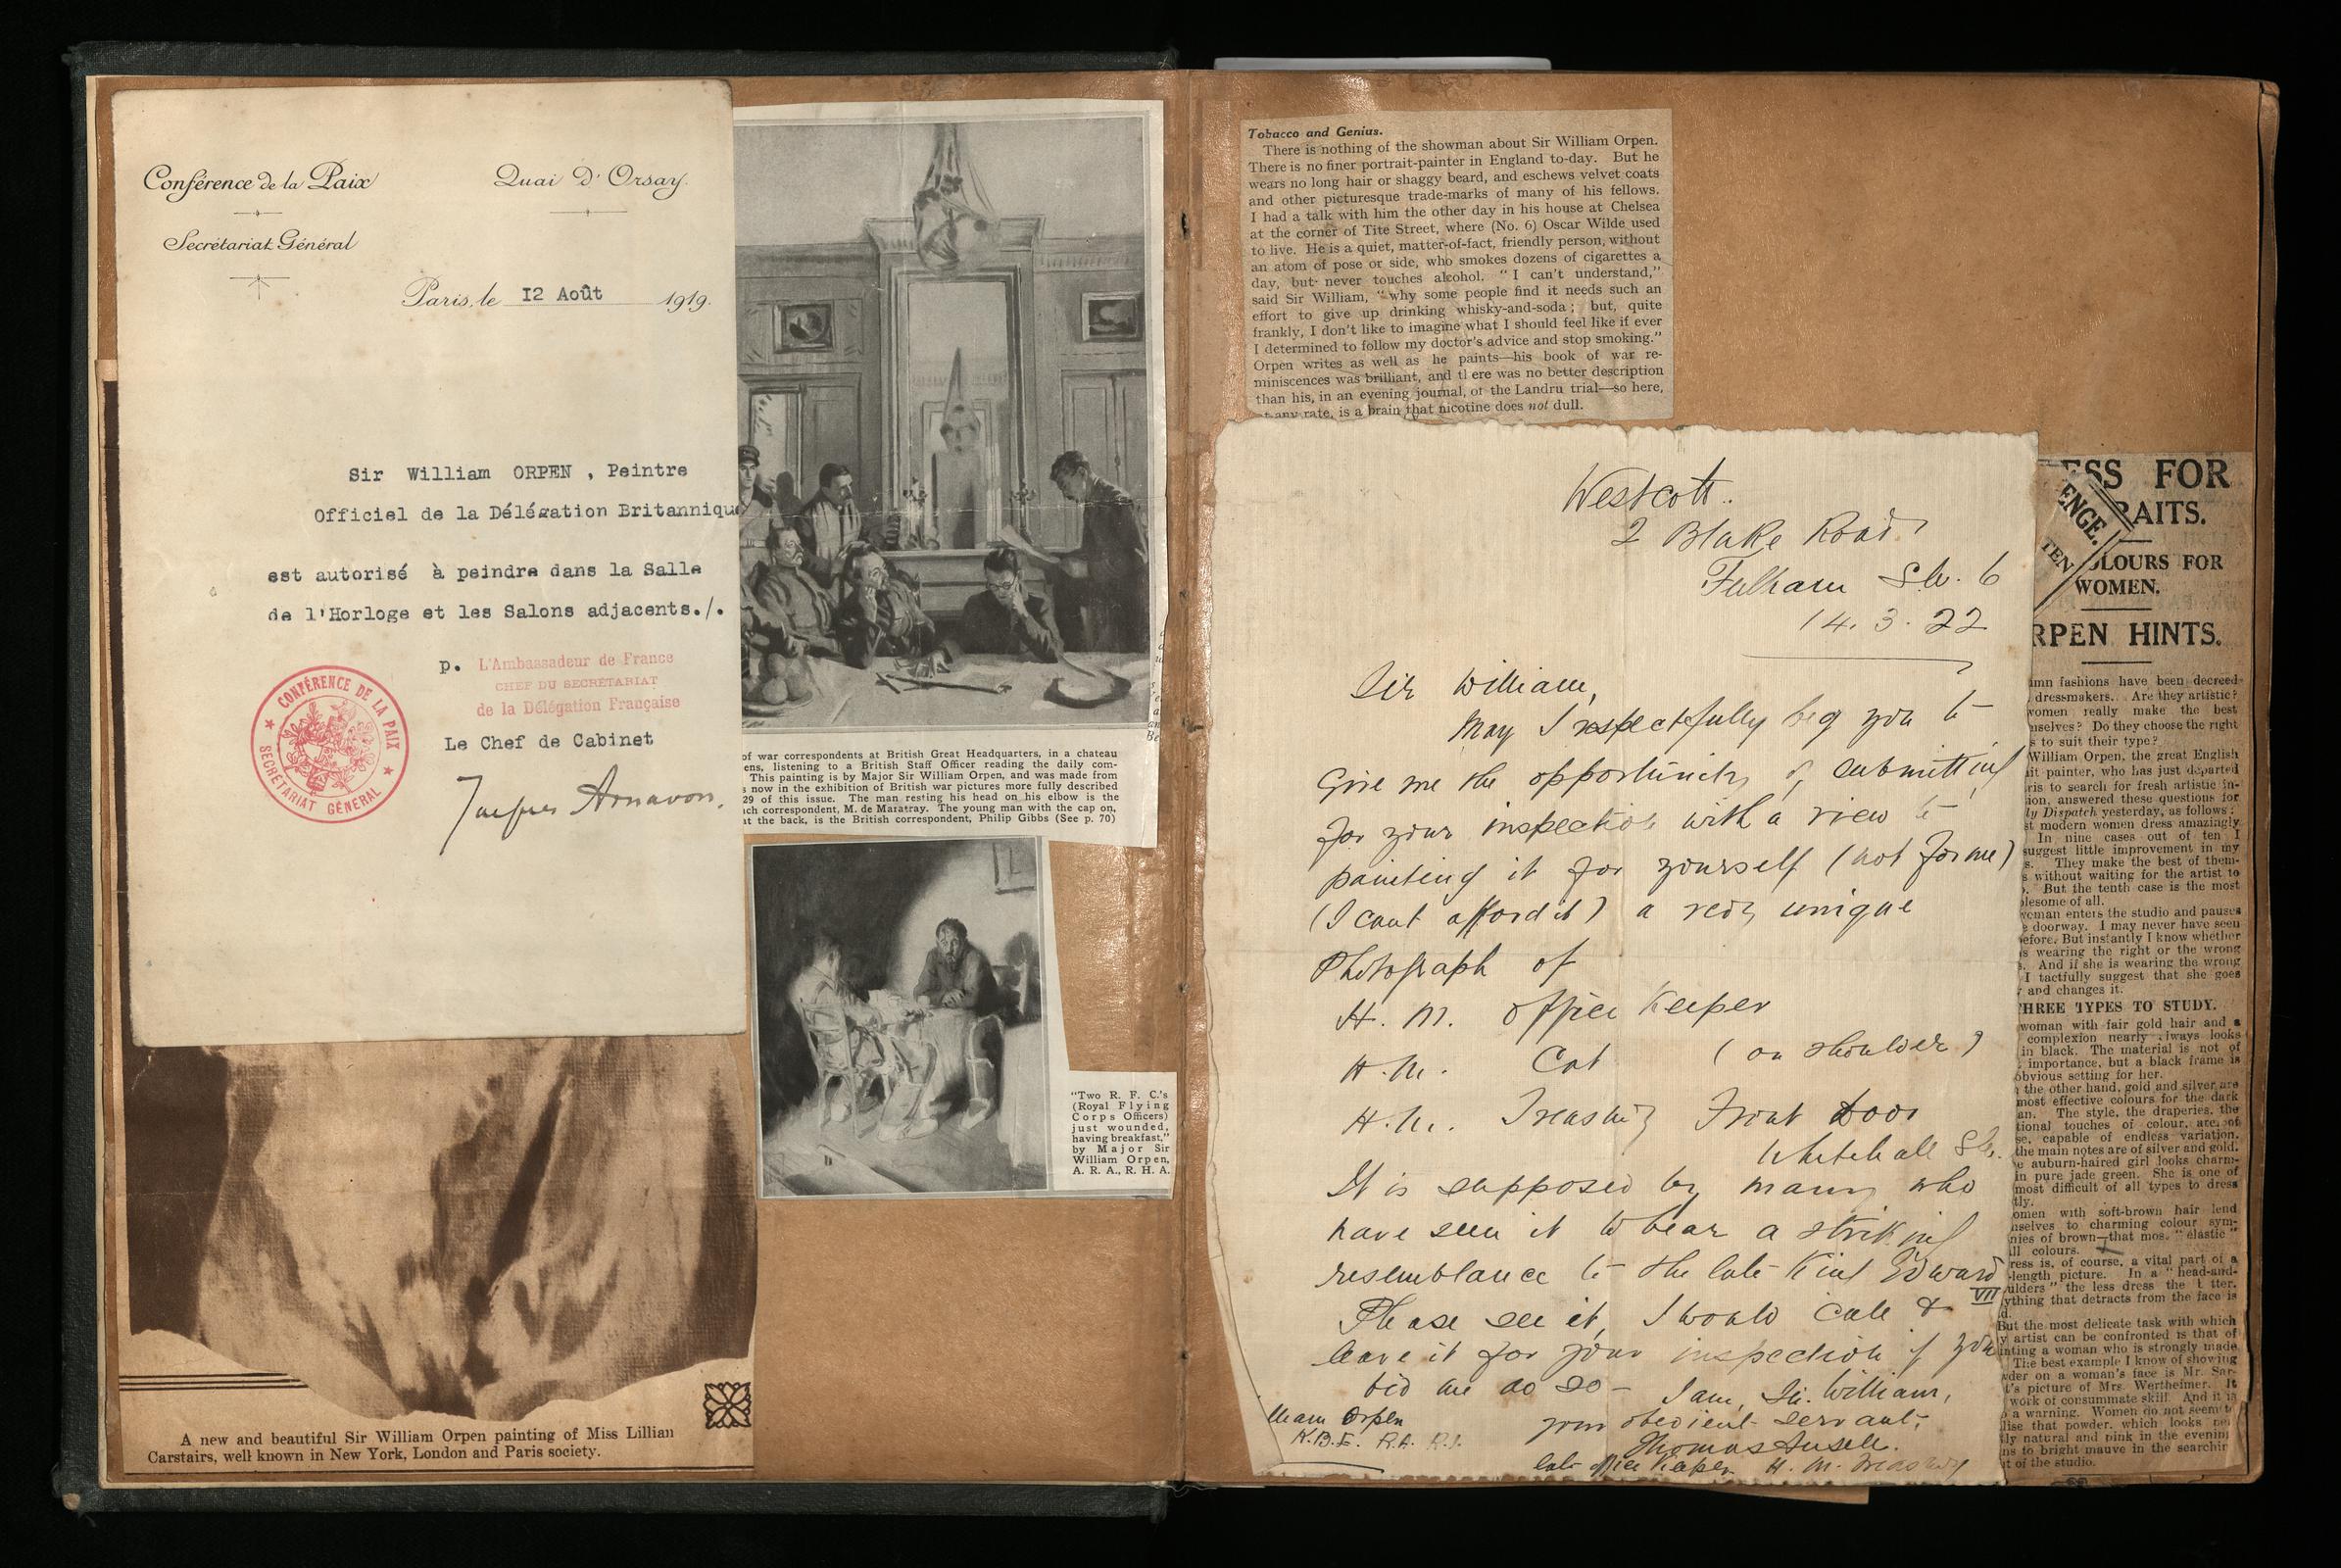 Conférence de la Paix
Quai d'Orsay.
Secrétariat Général
Paris, le 12 Août 1919.
Sir William ORPEN , Peintre
Officiel de la Délégation Britannique
est autorisé à peindre dans la Salle
de l'Horloge et les Salons adjacents./.
p. L'Ambassadeur de France
CHEF DU SECRÉTARIAT
de la Délégation Française
CONFÉRENCE DE LA PAIX
SECRÉTARIAT GÉNÉRAL
Le Chef de Cabinet
Jacques Arnavon.
A new and beautiful Sir William Orpen painting of Miss Lillian
Carstairs, well known in New York, London and Paris society.
of war correspondents at British Great Headquarters, in a chateau
ens, listening to a British Staff Officer reading the daily com-
This painting is by Major Sir William Orpen, and was made from
s now in the exhibition of British war pictures more fully described
29 of this issue. The man resting his head on his elbow is the
ch correspondent, M. de Maratray. The young man with the cap on,
at the back, is the British correspondent, Philip Gibbs (See p. 70)
"Two R. F. C.'s
(Royal Flying
Corps Officers)
just wounded,
having breakfast,"
by Major Sir
William Orpen,
A. R. A., R. H. A.
Tobacco and Genius.
There is nothing of the showman about Sir William Orpen.
There is no finer portrait-painter in England to-day. But he
wears no long hair or shaggy beard, and eschews velvet coats
and other picturesque trade-marks of many of his fellows.
I had a talk with him the other day in his house at Chelsea
at the corner of Tite Street, where (No. 6) Oscar Wilde used
to live. He is a quiet, matter-of-fact, friendly person, without
an atom of pose or side, who smokes dozens of cigarettes a
day, but never touches alcohol. "I can't understand,"
said Sir William, "why some people find it needs such an
effort to give up drinking whisky-and-soda; but, quite
frankly, I don't like to imagine what I should feel like if ever
I determined to follow my doctor's advice and stop smoking."
Orpen writes as well as he paints—his book of war re-
miniscences was brilliant, and there was no better description
than his, in an evening journal, of the Landru trial—so here,
at any rate, is a brain that nicotine does not dull.
Westcott.
2 Blake Road
Fulham S.W. 6
14. 3. 22
Sir William,
May I respectfully beg you to
Give me the opportunity of submitting
for your inspection with a view to
painting it for yourself (not for me)
(I cant afford it) a very unique
Photograph of
H. M. Office Keeper
H. M. Cat (on shoulder)
H. M. Treasury Front Door
Whitehall S.W.
It is supposed by many who
have seen it to bear a striking
resemblance to the late King Edward
VII
Please see it, I would call &
leave it for your inspection if you
bid me do so – I am, Sir William,
your obedient servant,
Thomas Ansell.
late Office Keeper H. M. Treasury
lliam Orpen
K.B.E. R.A. R.I.
ESS FOR
RAITS.
ENGE.
TEN
OLOURS FOR
WOMEN.
RPEN HINTS.
umn fashions have been decreed
dressmakers. Are they artistic?
women really make the best
mselves? Do they choose the right
s to suit their type?
William Orpen, the great English
ait painter, who has just departed
ris to search for fresh artistic in-
ion, answered these questions for
ly Dispatch yesterday, as follows:
st modern women dress amazingly
In nine cases out of ten I
suggest little improvement in my
s. They make the best of them-
s without waiting for the artist to
. But the tenth case is the most
blesome of all.
woman enters the studio and pauses
e doorway. I may never have seen
efore. But instantly I know whether
is wearing the right or the wrong
s. And if she is wearing the wrong
I tactfully suggest that she goes
and changes it.
THREE TYPES TO STUDY.
woman with fair gold hair and a
complexion nearly always looks
in black. The material is not of
importance, but a black frame is
obvious setting for her.
the other hand, gold and silver are
most effective colours for the dark
an. The style, the draperies, the
tional touches of colour, are, of
se, capable of endless variation,
the main notes are of silver and gold.
e auburn-haired girl looks charm-
in pure jade green. She is one of
most difficult of all types to dress
tly.
omen with soft-brown hair lend
mselves to charming colour sym-
nies of brown—that most "elastic"
all colours.
ress is, of course, a vital part of a
-length picture. In a "head-and-
ulders" the less dress the better.
ything that detracts from the face is
d.
But the most delicate task with which
y artist can be confronted is that of
inting a woman who is strongly made
The best example I know of showing
wder on a woman's face is Mr. Sar-
t's picture of Mrs. Wertheimer. It
work of consummate skill. And it is
a warning. Women do not seem to
lise that powder, which looks
ly natural and pink in the evening
ns to bright mauve in the searchin
t of the studio.